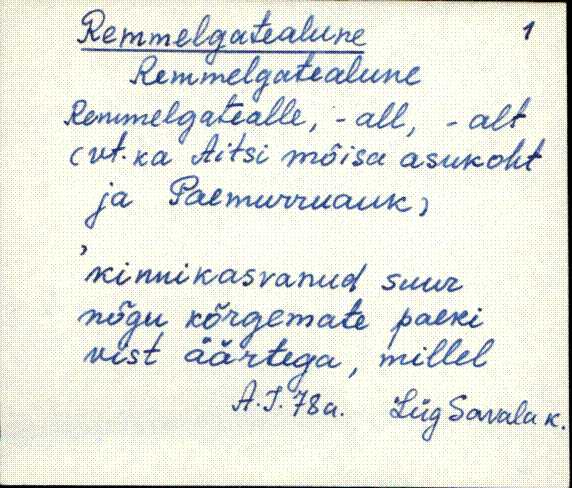 Remmelgatealune 1
Remmelgatealune
Remmelgatealle, -all, -alt
(vt. ka Aitsi mõisa asukoht
ja Paemurruauk)
'kinnikasvanud suur
nõgu kõrgemate paeki
vist äärtega, millel
A.J. 78a. Lüg Savala k.